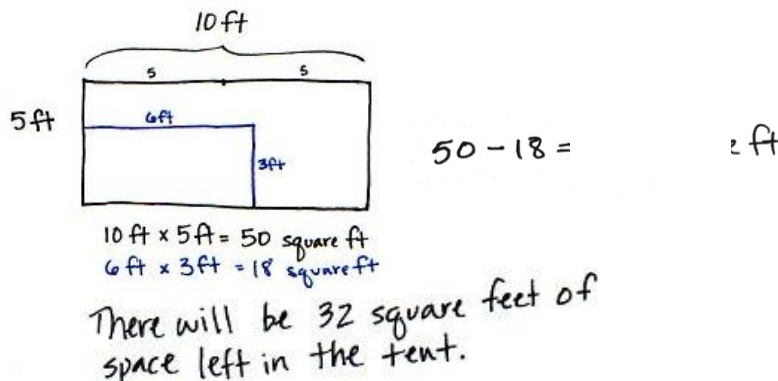 10 ft
5 5
5 ft
6 ft
3 ft
50 - 18 = ft
10 ft x 5 ft = 50 square ft
6 ft x 3 ft = 18 square ft
There will be 32 square feet of
space left in the tent.